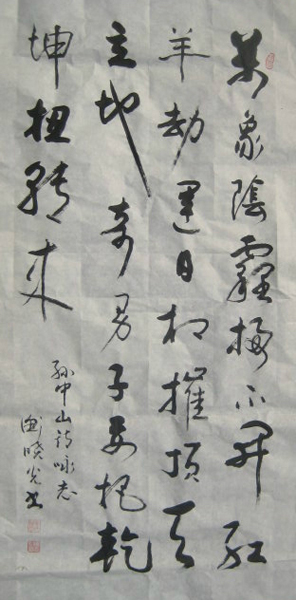 萬象陰霾掃不開紅
羊劫運日相摧頂天
立地奇男子要把乾
坤扭轉來
孫中山詩咏志
曉光書